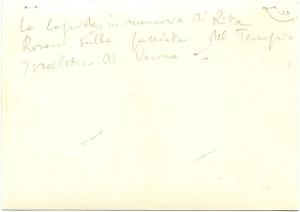 La lapide in memoria di Rita
Rosani sulla facciata del Tempio
Israelitico di Verona